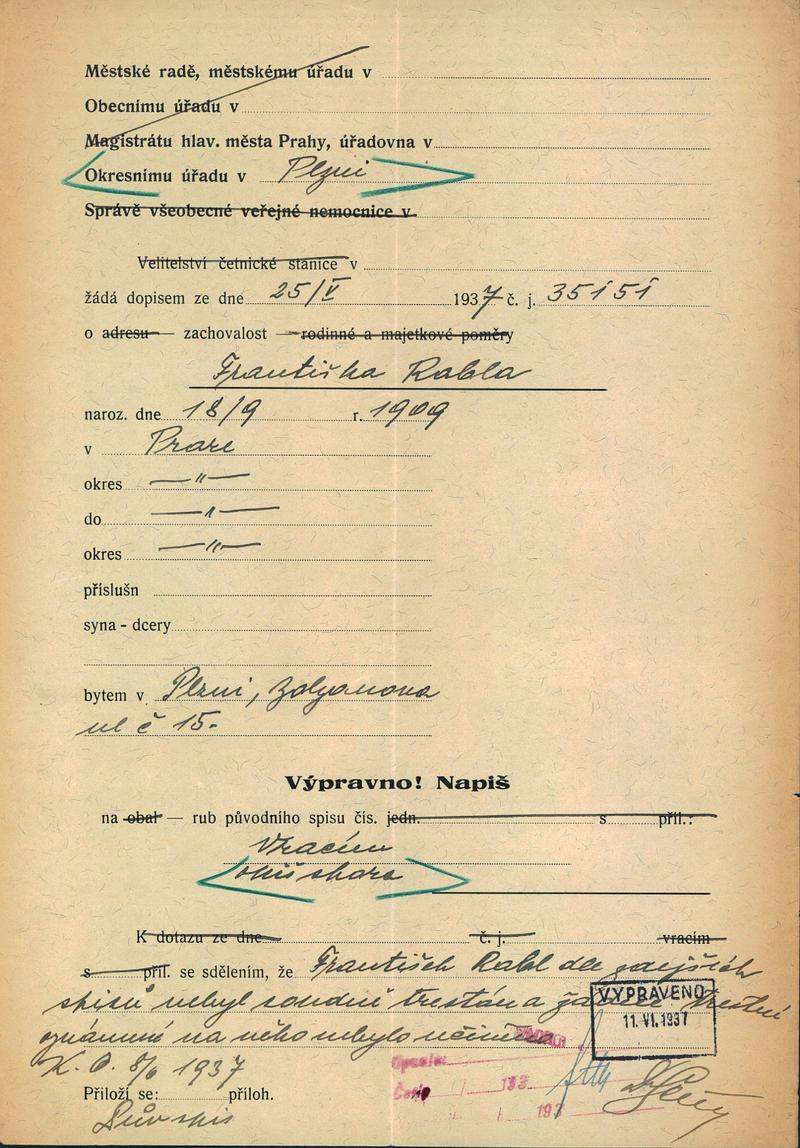 Městské radě, městskému úřadu v
Obecnímu úřadu v
Magistrátu hlav. města Prahy, úřadovna v
Okresnímu úřadu v Plzni
Správě všeobecné veřejné nemocnice v
Velitelství četnické stanice v
žádá dopisem ze dne 25/V 1937 č. j. 35151
o adresu — zachovalost — rodinné a majetkové poměry
Františka Rabla
naroz. dne 18/9 r. 1909
v Praze
okres —"—
do —"—
okres —"—
příslušn
syna - dcery
bytem v Plzni,
ul č 15.
Výpravno! Napiš
na obal — rub původního spisu čís. jedn. s příl.:
Vracím
K dotazu ze dne č. j. vracím
s příl. se sdělením, že František Rabl dle zdejších
spisů nebyl soudně trestán a trestní
oznámení na něho nebylo učiněno
VYPRAVENO
11. VI. 1937
K. O. 8/6 1937
Opsáno:
Četo 193
193
Přiloží se: příloh.
Pův spis